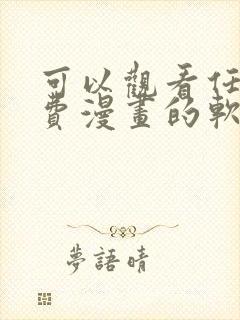 可以觀看任
費漫畫的軟
夢語晴